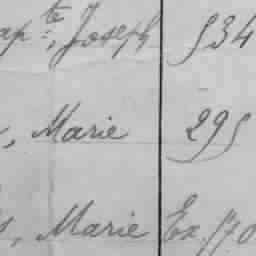 apte, Joseph 534
, Marie 295
s, Marie Ex. 170